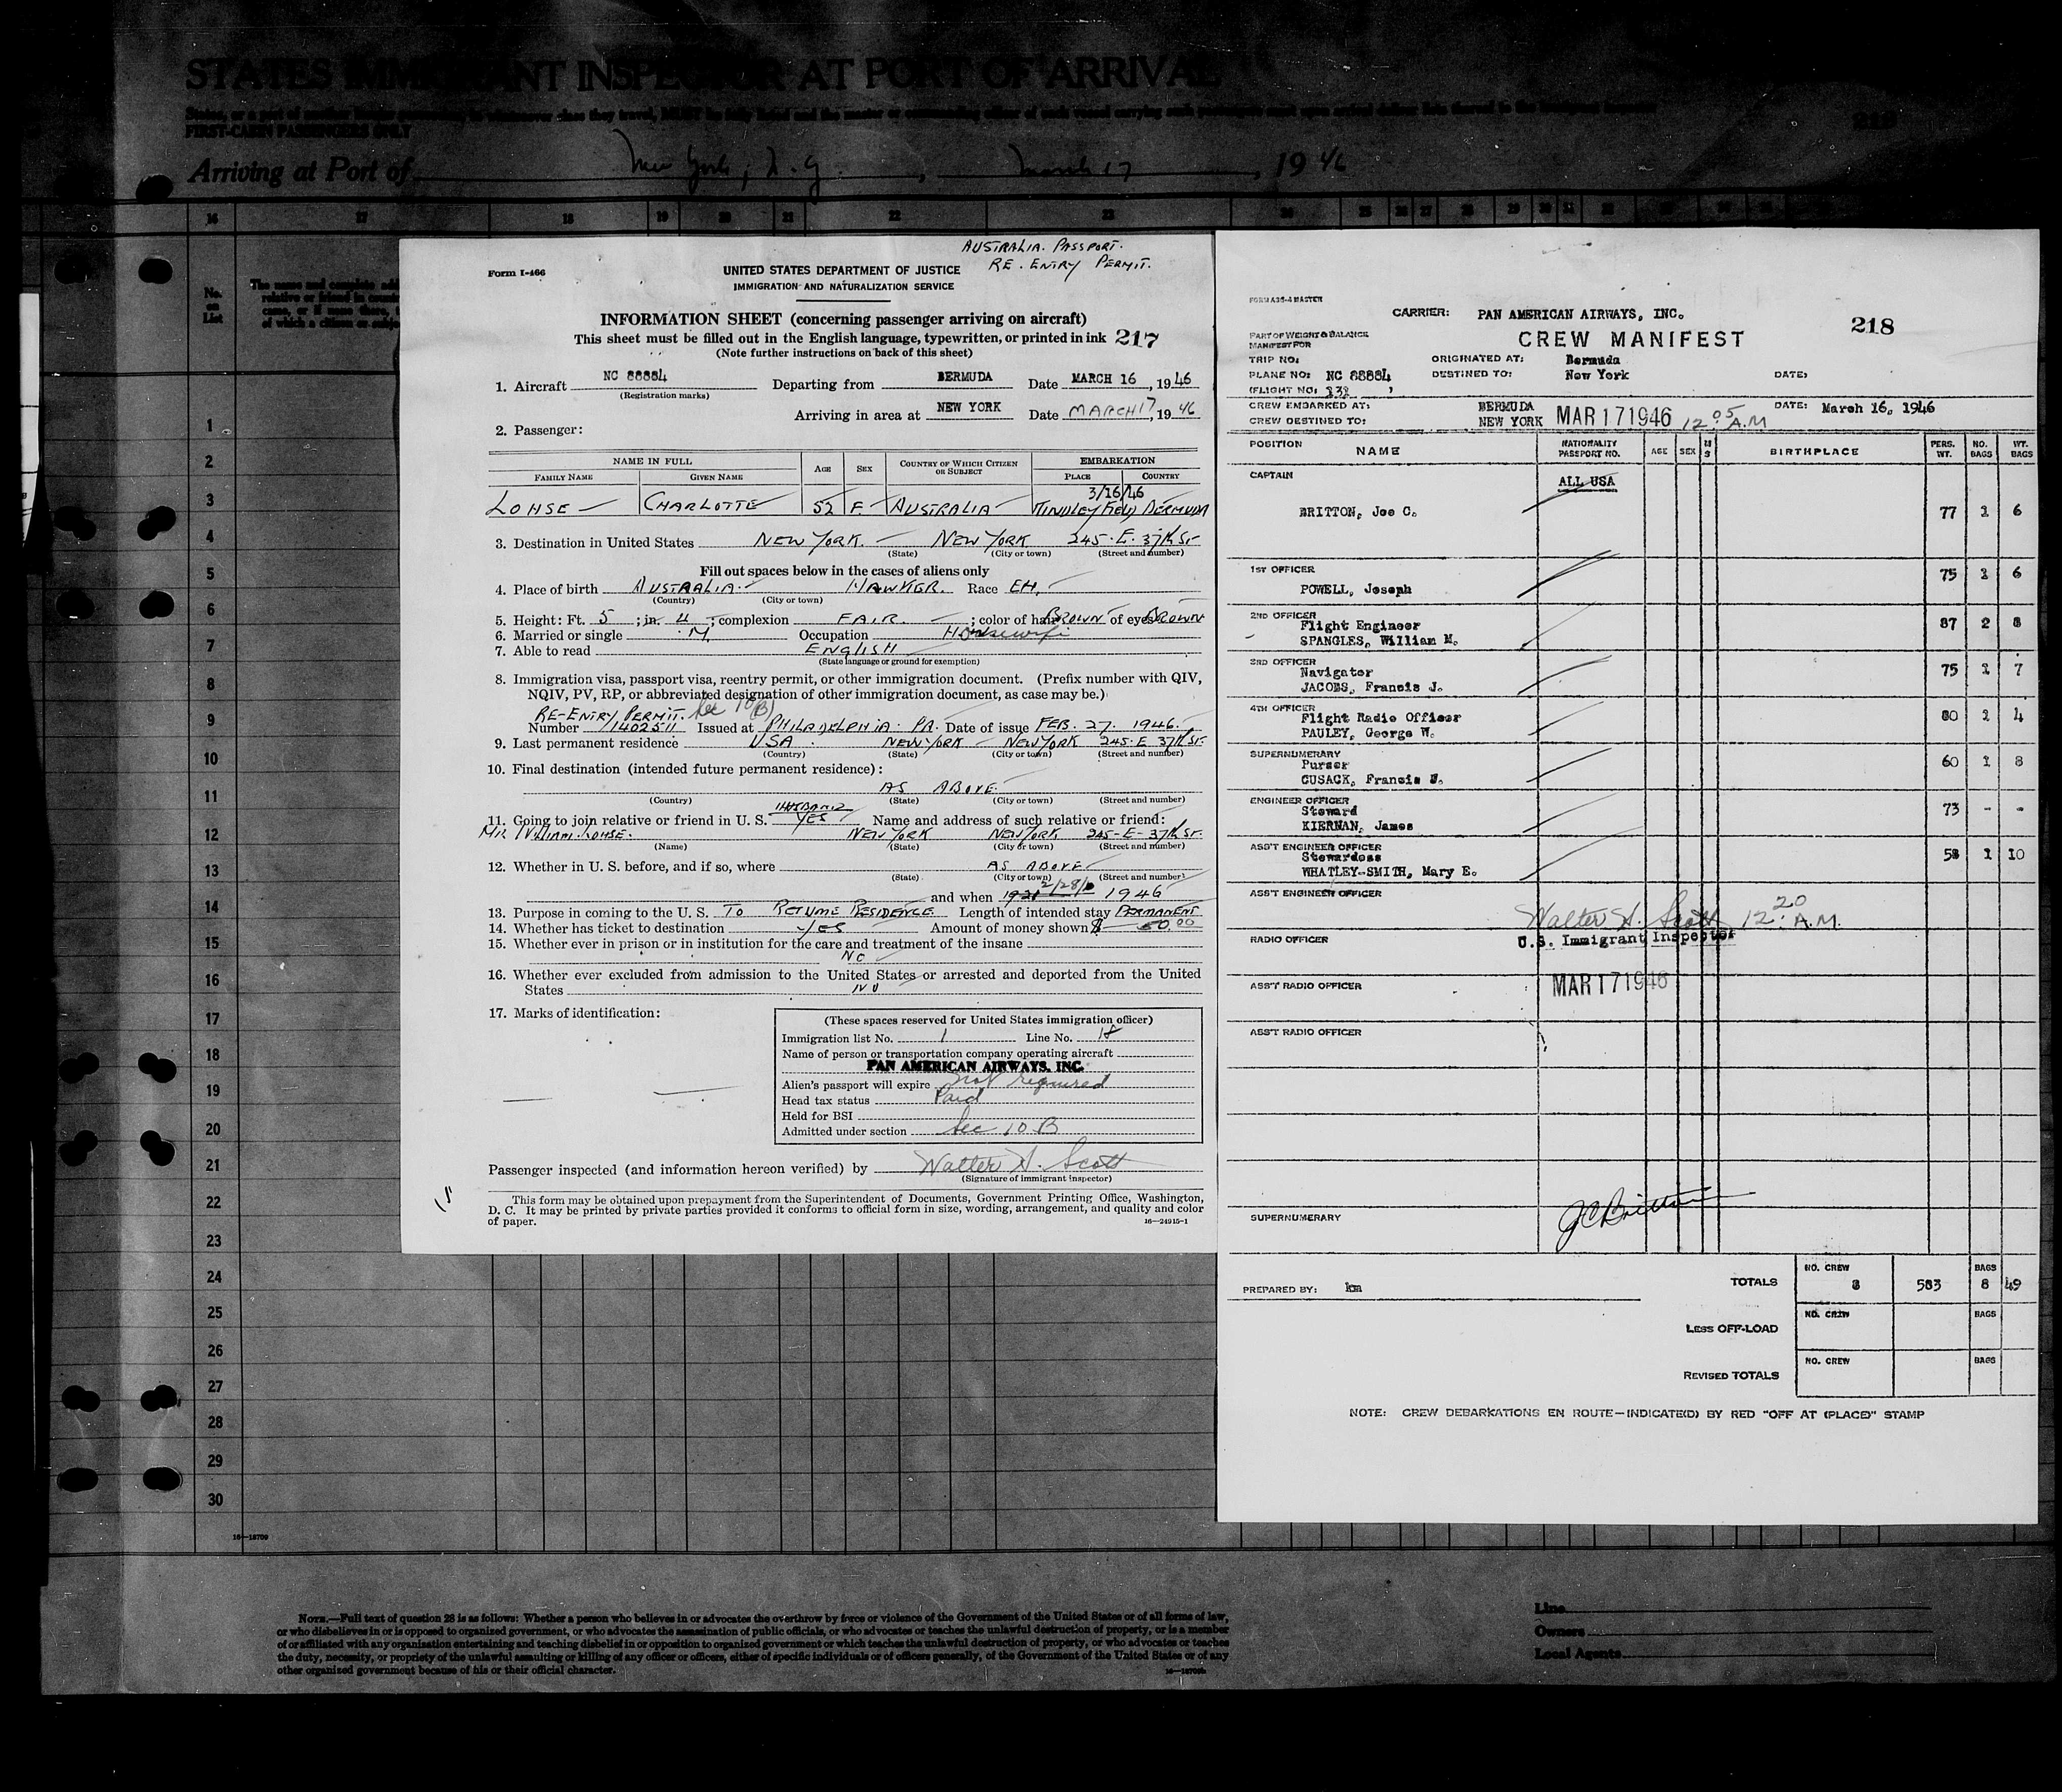 STATES IMMIGRANT INSPECTOR AT PORT OF ARRIVAL
FIRST-CABIN PASSENGERS ONLY
Arriving at Port of New York, March 17, 1946
16 17 18 19 20 21 22 23
No. on List
1
2
3
4
5
6
7
8
9
10
11
12
13
14
15
16
17
18
19
20
21
22
23
24
25
26
27
28
29
30
16—18709
AUSTRALIA. PASSPORT.
RE. ENTRY PERMIT.
Form I-466
UNITED STATES DEPARTMENT OF JUSTICE
IMMIGRATION AND NATURALIZATION SERVICE
INFORMATION SHEET (concerning passenger arriving on aircraft)
This sheet must be filled out in the English language, typewritten, or printed in ink 217
(Note further instructions on back of this sheet)
1. Aircraft NC 88884 Departing from BERMUDA Date MARCH 16, 1946
(Registration marks)
Arriving in area at NEW YORK Date MARCH 17, 1946
2. Passenger:
NAME IN FULL AGE SEX COUNTRY OF WHICH CITIZEN OR SUBJECT EMBARKATION
FAMILY NAME GIVEN NAME PLACE COUNTRY
3/16/46
LOHSE CHARLOTTE 52 F. AUSTRALIA KINDLEY FIELD BERMUDA
3. Destination in United States NEW YORK. NEW YORK 245. E. 37th St
(State) (City or town) (Street and number)
Fill out spaces below in the cases of aliens only
4. Place of birth AUSTRALIA. HAWKER. Race EH.
(Country) (City or town)
5. Height: Ft. 5; in. 4; complexion FAIR.; color of hair BROWN of eyes BROWN
6. Married or single M. Occupation Housewife
7. Able to read ENGLISH
(State language or ground for exemption)
8. Immigration visa, passport visa, reentry permit, or other immigration document. (Prefix number with QIV,
NQIV, PV, RP, or abbreviated designation of other immigration document, as case may be.)
RE-ENTRY PERMIT. Sec 10(B)
Number 1402511 Issued at PHILADELPHIA. PA. Date of issue FEB. 27. 1946.
9. Last permanent residence USA. NEW YORK NEW YORK 245. E 37th St.
(Country) (State) (City or town) (Street and number)
10. Final destination (intended future permanent residence):
AS ABOVE.
(Country) (State) (City or town) (Street and number)
HUSBAND
11. Going to join relative or friend in U. S. YES Name and address of such relative or friend:
MR. WILLIAM. LOHSE. NEW YORK NEW YORK 245-E-37th St.
(Name) (State) (City or town) (Street and number)
12. Whether in U. S. before, and if so, where AS ABOVE
(State) (City or town) (Street and number)
and when 2/28/ 1946
13. Purpose in coming to the U. S. TO RETUME RESIDENCE Length of intended stay PERMANENT
14. Whether has ticket to destination YES Amount of money shown $ 50.00
15. Whether ever in prison or in institution for the care and treatment of the insane
NO
16. Whether ever excluded from admission to the United States or arrested and deported from the United
States NO
17. Marks of identification:
(These spaces reserved for United States immigration officer)
Immigration list No. 1 Line No. 18
Name of person or transportation company operating aircraft
PAN AMERICAN AIRWAYS, INC.
Alien's passport will expire not required
Head tax status Paid
Held for BSI
Admitted under section Sec 10 B
Passenger inspected (and information hereon verified) by Walter H. Scott
(Signature of immigrant inspector)
This form may be obtained upon prepayment from the Superintendent of Documents, Government Printing Office, Washington,
D. C. It may be printed by private parties provided it conforms to official form in size, wording, arrangement, and quality and color
of paper. 16—24915-1
FORM A36-4 MASTER
CARRIER: PAN AMERICAN AIRWAYS, INC.
218
PART OF WEIGHT & BALANCE
MANIFEST FOR
CREW MANIFEST
TRIP NO: ORIGINATED AT: Bermuda
PLANE NO: NC 88884 DESTINED TO: New York DATE:
(FLIGHT NO: 232)
CREW EMBARKED AT: BERMUDA DATE: March 16, 1946
CREW DESTINED TO: NEW YORK MAR 17 1946 12:05 A.M
POSITION NAME NATIONALITY PASSPORT NO. AGE SEX BIRTHPLACE PERS. WT. NO. BAGS WT. BAGS
CAPTAIN ALL USA
BRITTON, Joe C. 77 1 6
1ST OFFICER
POWELL, Joseph 75 1 6
2ND OFFICER
Flight Engineer
SPANGLES, William M. 87 2 8
3RD OFFICER
Navigator
JACOBS, Francis J. 75 1 7
4TH OFFICER
Flight Radio Officer
PAULEY, George W. 80 1 4
SUPERNUMERARY
Purser
CUSACK, Francis J. 60 1 8
ENGINEER OFFICER
Steward
KIERNAN, James 73 - -
ASS'T ENGINEER OFFICER
Stewardess
WHATLEY-SMITH, Mary E. 58 1 10
ASS'T ENGINEER OFFICER
Walter H. Scott 12:20 A.M.
RADIO OFFICER U.S. Immigrant Inspector
ASS'T RADIO OFFICER MAR 17 1946
ASS'T RADIO OFFICER
SUPERNUMERARY JC Britton
PREPARED BY: km
TOTALS NO. CREW 8 583 BAGS 8 49
LESS OFF-LOAD NO. CREW BAGS
REVISED TOTALS NO. CREW BAGS
NOTE: CREW DEBARKATIONS EN ROUTE—INDICATE(D) BY RED "OFF AT (PLACE)" STAMP
NOTE.—Full text of question 28 is as follows: Whether a person who believes in or advocates the overthrow by force or violence of the Government of the United States or of all forms of law,
or who disbelieves in or is opposed to organized government, or who advocates the assassination of public officials, or who advocates or teaches the unlawful destruction of property, or is a member
of or affiliated with any organization entertaining and teaching disbelief in or opposition to organized government or which teaches the unlawful destruction of property, or who advocates or teaches
the duty, necessity, or propriety of the unlawful assaulting or killing of any officer or officers, either of specific individuals or of officers generally, of the Government of the United States or of any
other organized government because of his or their official character.
Line
Owners
Local Agents